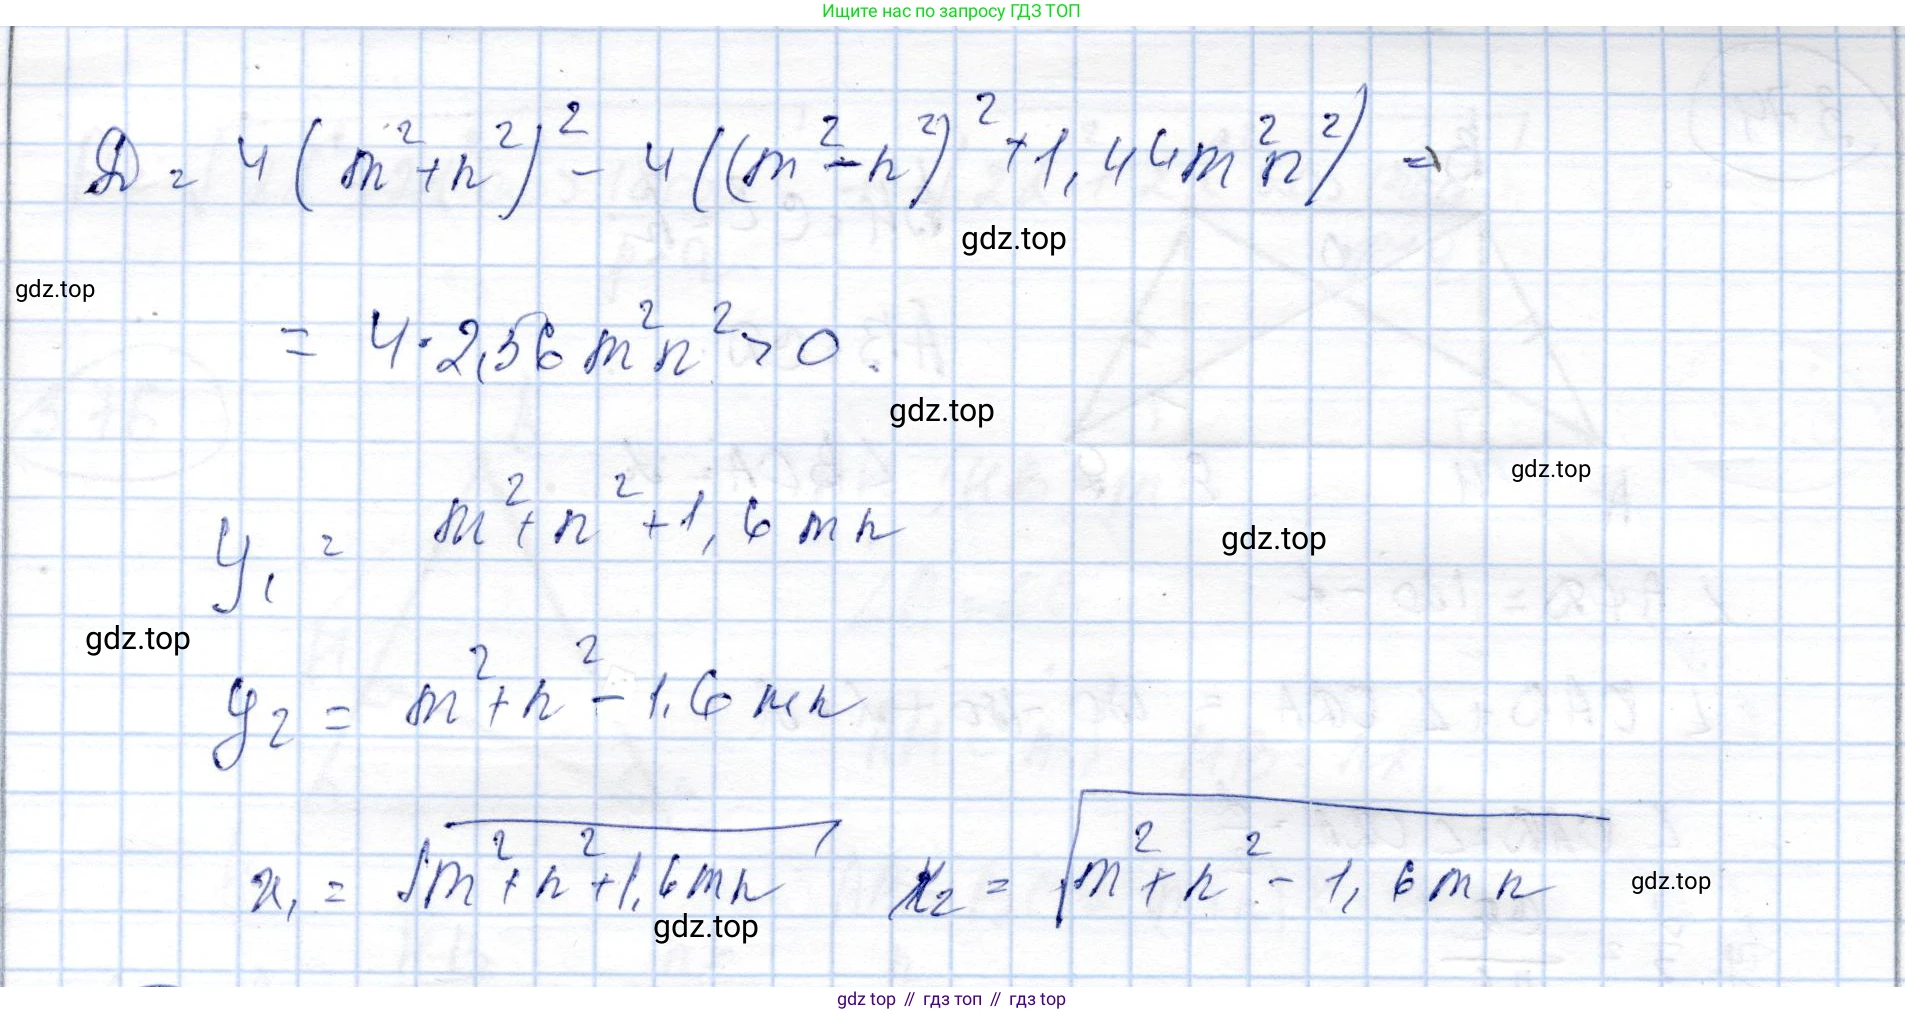 Ищите нас по запросу ГДЗ ТОП
D = 4(m²+n²)² - 4((m²-n²)² + 1,44m²n²) =
gdz.top
gdz.top
= 4·2,56m²n² > 0.
gdz.top
gdz.top
y₁ = m²+n²+1,6mn
gdz.top
gdz.top
y₂ = m²+n²-1,6mn
x₁ = √m²+n²+1,6mn x₂ = √m²+n²-1,6mn
gdz.top
gdz.top
gdz top // гдз топ // гдз top